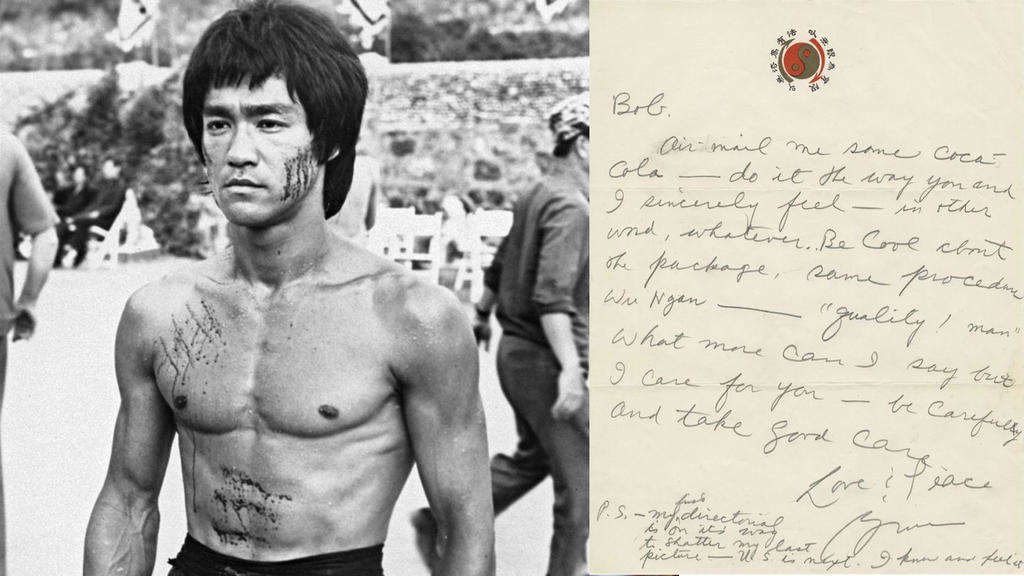 Bob.
Air-mail me some Coca-
Cola — do it the way you and
I sincerely feel — in other
word, whatever. Be Cool about
the package, same procedure
Wu Ngan —— "quality! man"
What more can I say but
I care for you — be carefully
and take good care
Love & Peace
Bruce
P.S. — my first directorial
is on its way
to shatter my last
picture — U.S. is next. I know and feel it